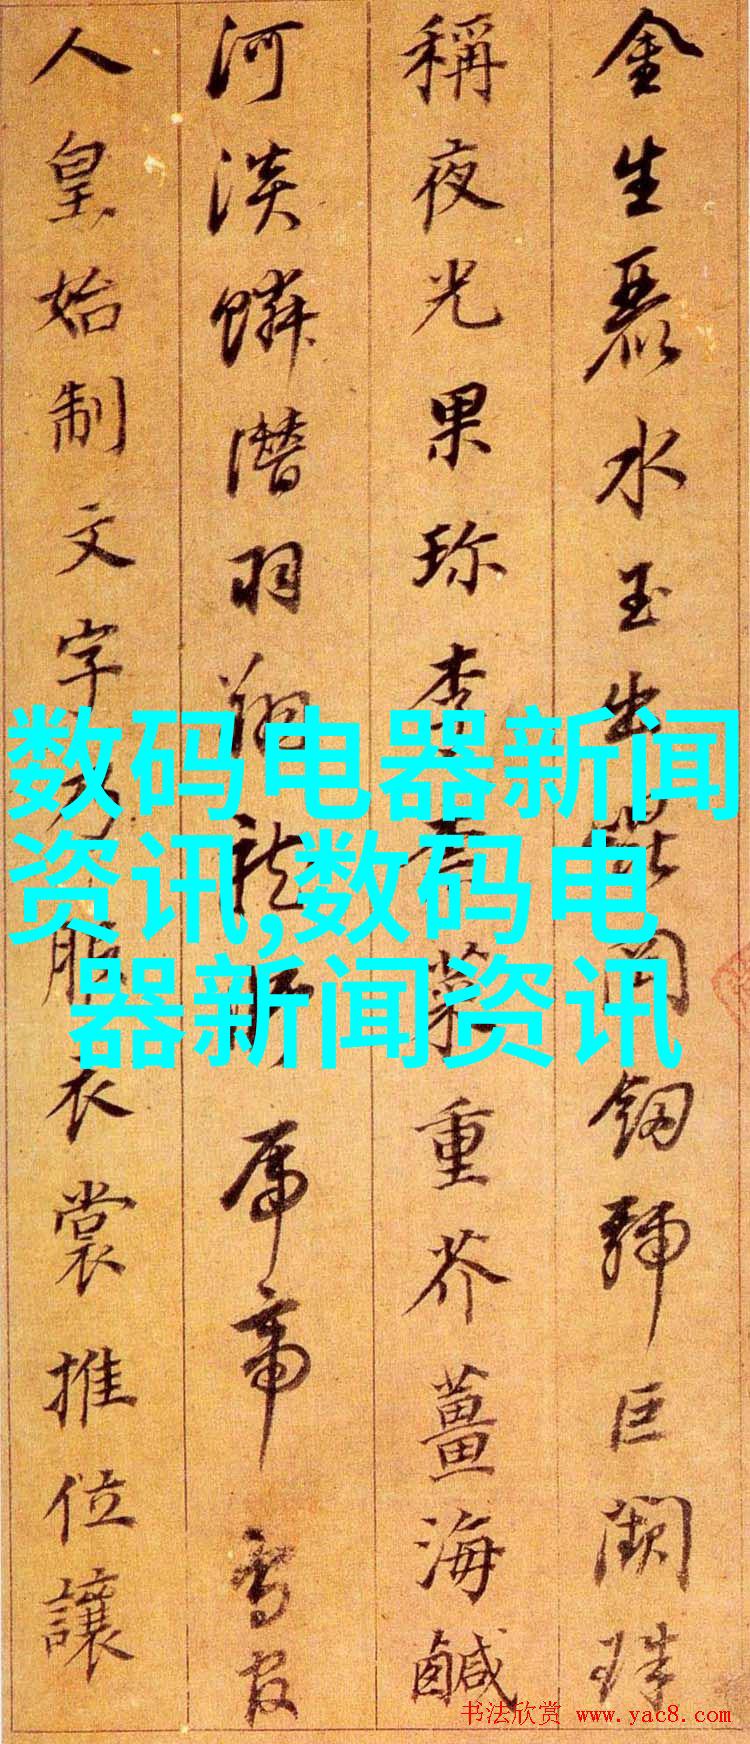 金生麗水玉出崑岡劒號巨闕珠
稱夜光果珎李柰菜重芥薑海鹹
河淡鱗潛羽翔龍師帝鳥官
人皇始制文字乃服衣裳推位讓
数码电器新闻
资讯,数码电
器新闻资讯
书法欣赏 www.yac8.com